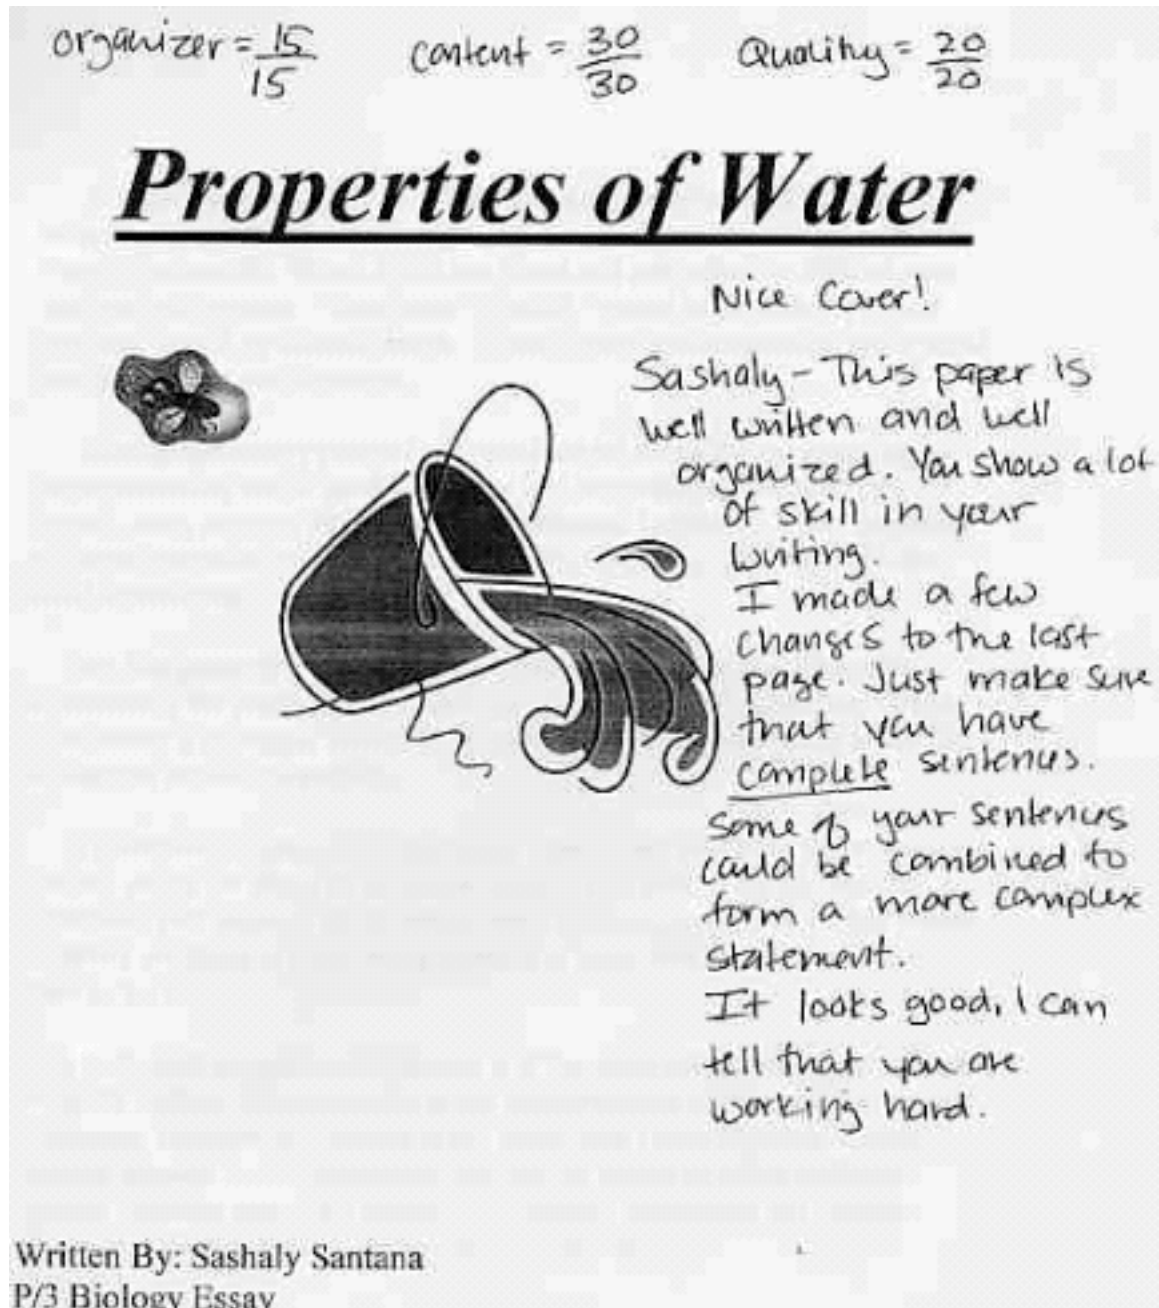 organizer = 15/15 content = 30/30 Quality = 20/20
Properties of Water
Nice Cover!
Sashaly - This paper is
well written and well
organized. You show a lot
of skill in your
writing.
I made a few
changes to the last
page. Just make sure
that you have
complete sentences.
Some of your sentences
could be combined to
form a more complex
statement.
It looks good, I can
tell that you are
working hard.
Written By: Sashaly Santana
P/3 Biology Essay